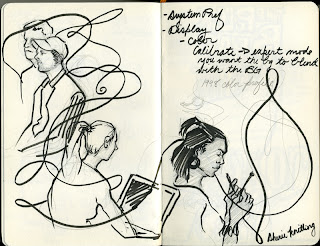 - System Pref
- Display
- Color
Calibrate -> expert mode
you want the bg to blend
with the BG
1998 color profile
Sherie Knitting